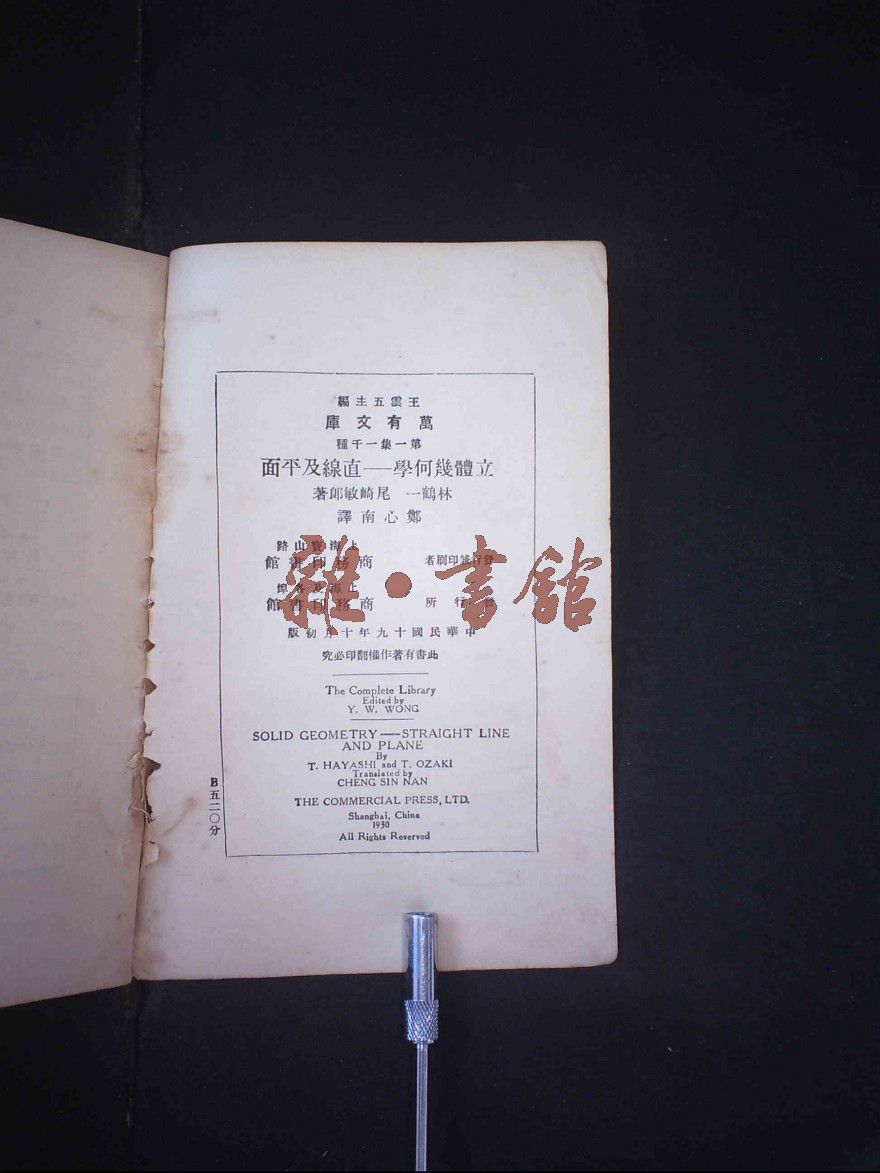 王雲五主編
萬有文庫
第一集一千種
立體幾何學——直線及平面
林鶴一 尾崎敏郎著
鄭心南譯
上海寶山路
發行兼印刷者 商務印書館
上海及各埠
發行所 商務印書館
中華民國十九年十月初版
此書有著作權翻印必究
The Complete Library
Edited by
Y. W. WONG
SOLID GEOMETRY——STRAIGHT LINE
AND PLANE
By
T. HAYASHI and T. OZAKI
Translated by
CHENG SIN NAN
THE COMMERCIAL PRESS, LTD.
Shanghai, China
1930
All Rights Reserved
B五二〇分
雜·書館